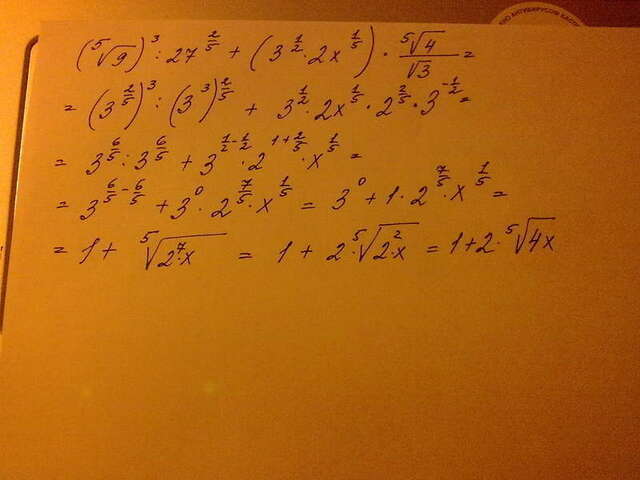 НО АНТИВИРУСОМ
(⁵√9)³ : 27^(2/5) + (3^(1/2) · 2x^(1/5)) · ⁵√4/√3 =
= (3^(2/5))³ : (3³)^(2/5) + 3^(1/2) · 2x^(1/5) · 2^(2/5) · 3^(-1/2) =
= 3^(6/5) : 3^(6/5) + 3^(1/2-1/2) · 2^(1+2/5) · x^(1/5) =
= 3^(6/5-6/5) + 3^0 · 2^(7/5) · x^(1/5) = 3^0 + 1 · 2^(7/5) · x^(1/5) =
= 1 + ⁵√(2⁷·x) = 1 + 2·⁵√(2²·x) = 1+2·⁵√4x